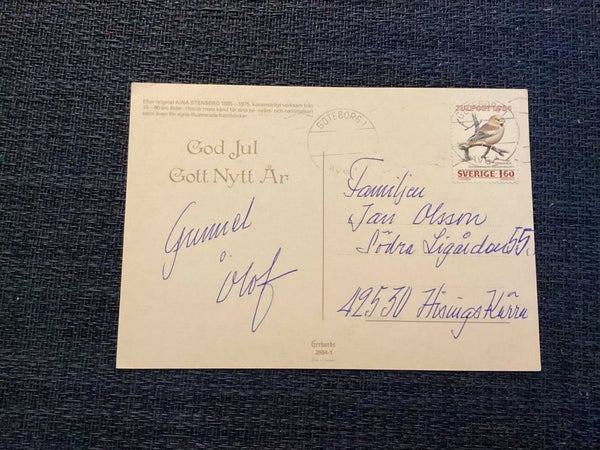 Efter original AINA STENBERG 1885 - 1975, konstnärligt verksam från
15 - 80 års ålder. Hon är mest känd för sina jul-, nyårs- och
samt även för egna illustrerade barnböcker.
God Jul
Gott Nytt År
Gunnel
Olof
GÖTEBORG 1
JULPOST 1984
SVERIGE 160
Familjen
Jan Olsson
Södra 55.
42530 Hisings Kärra
Gerbards
2884-1